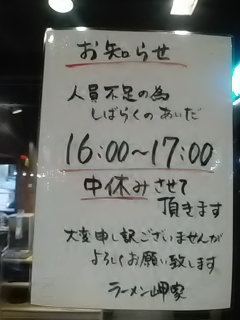 お知らせ
人員不足の為
しばらくのあいだ
16:00~17:00
中休みさせて
頂きます
大変申し訳ございませんが
よろしくお願い致します
ラーメン岬家